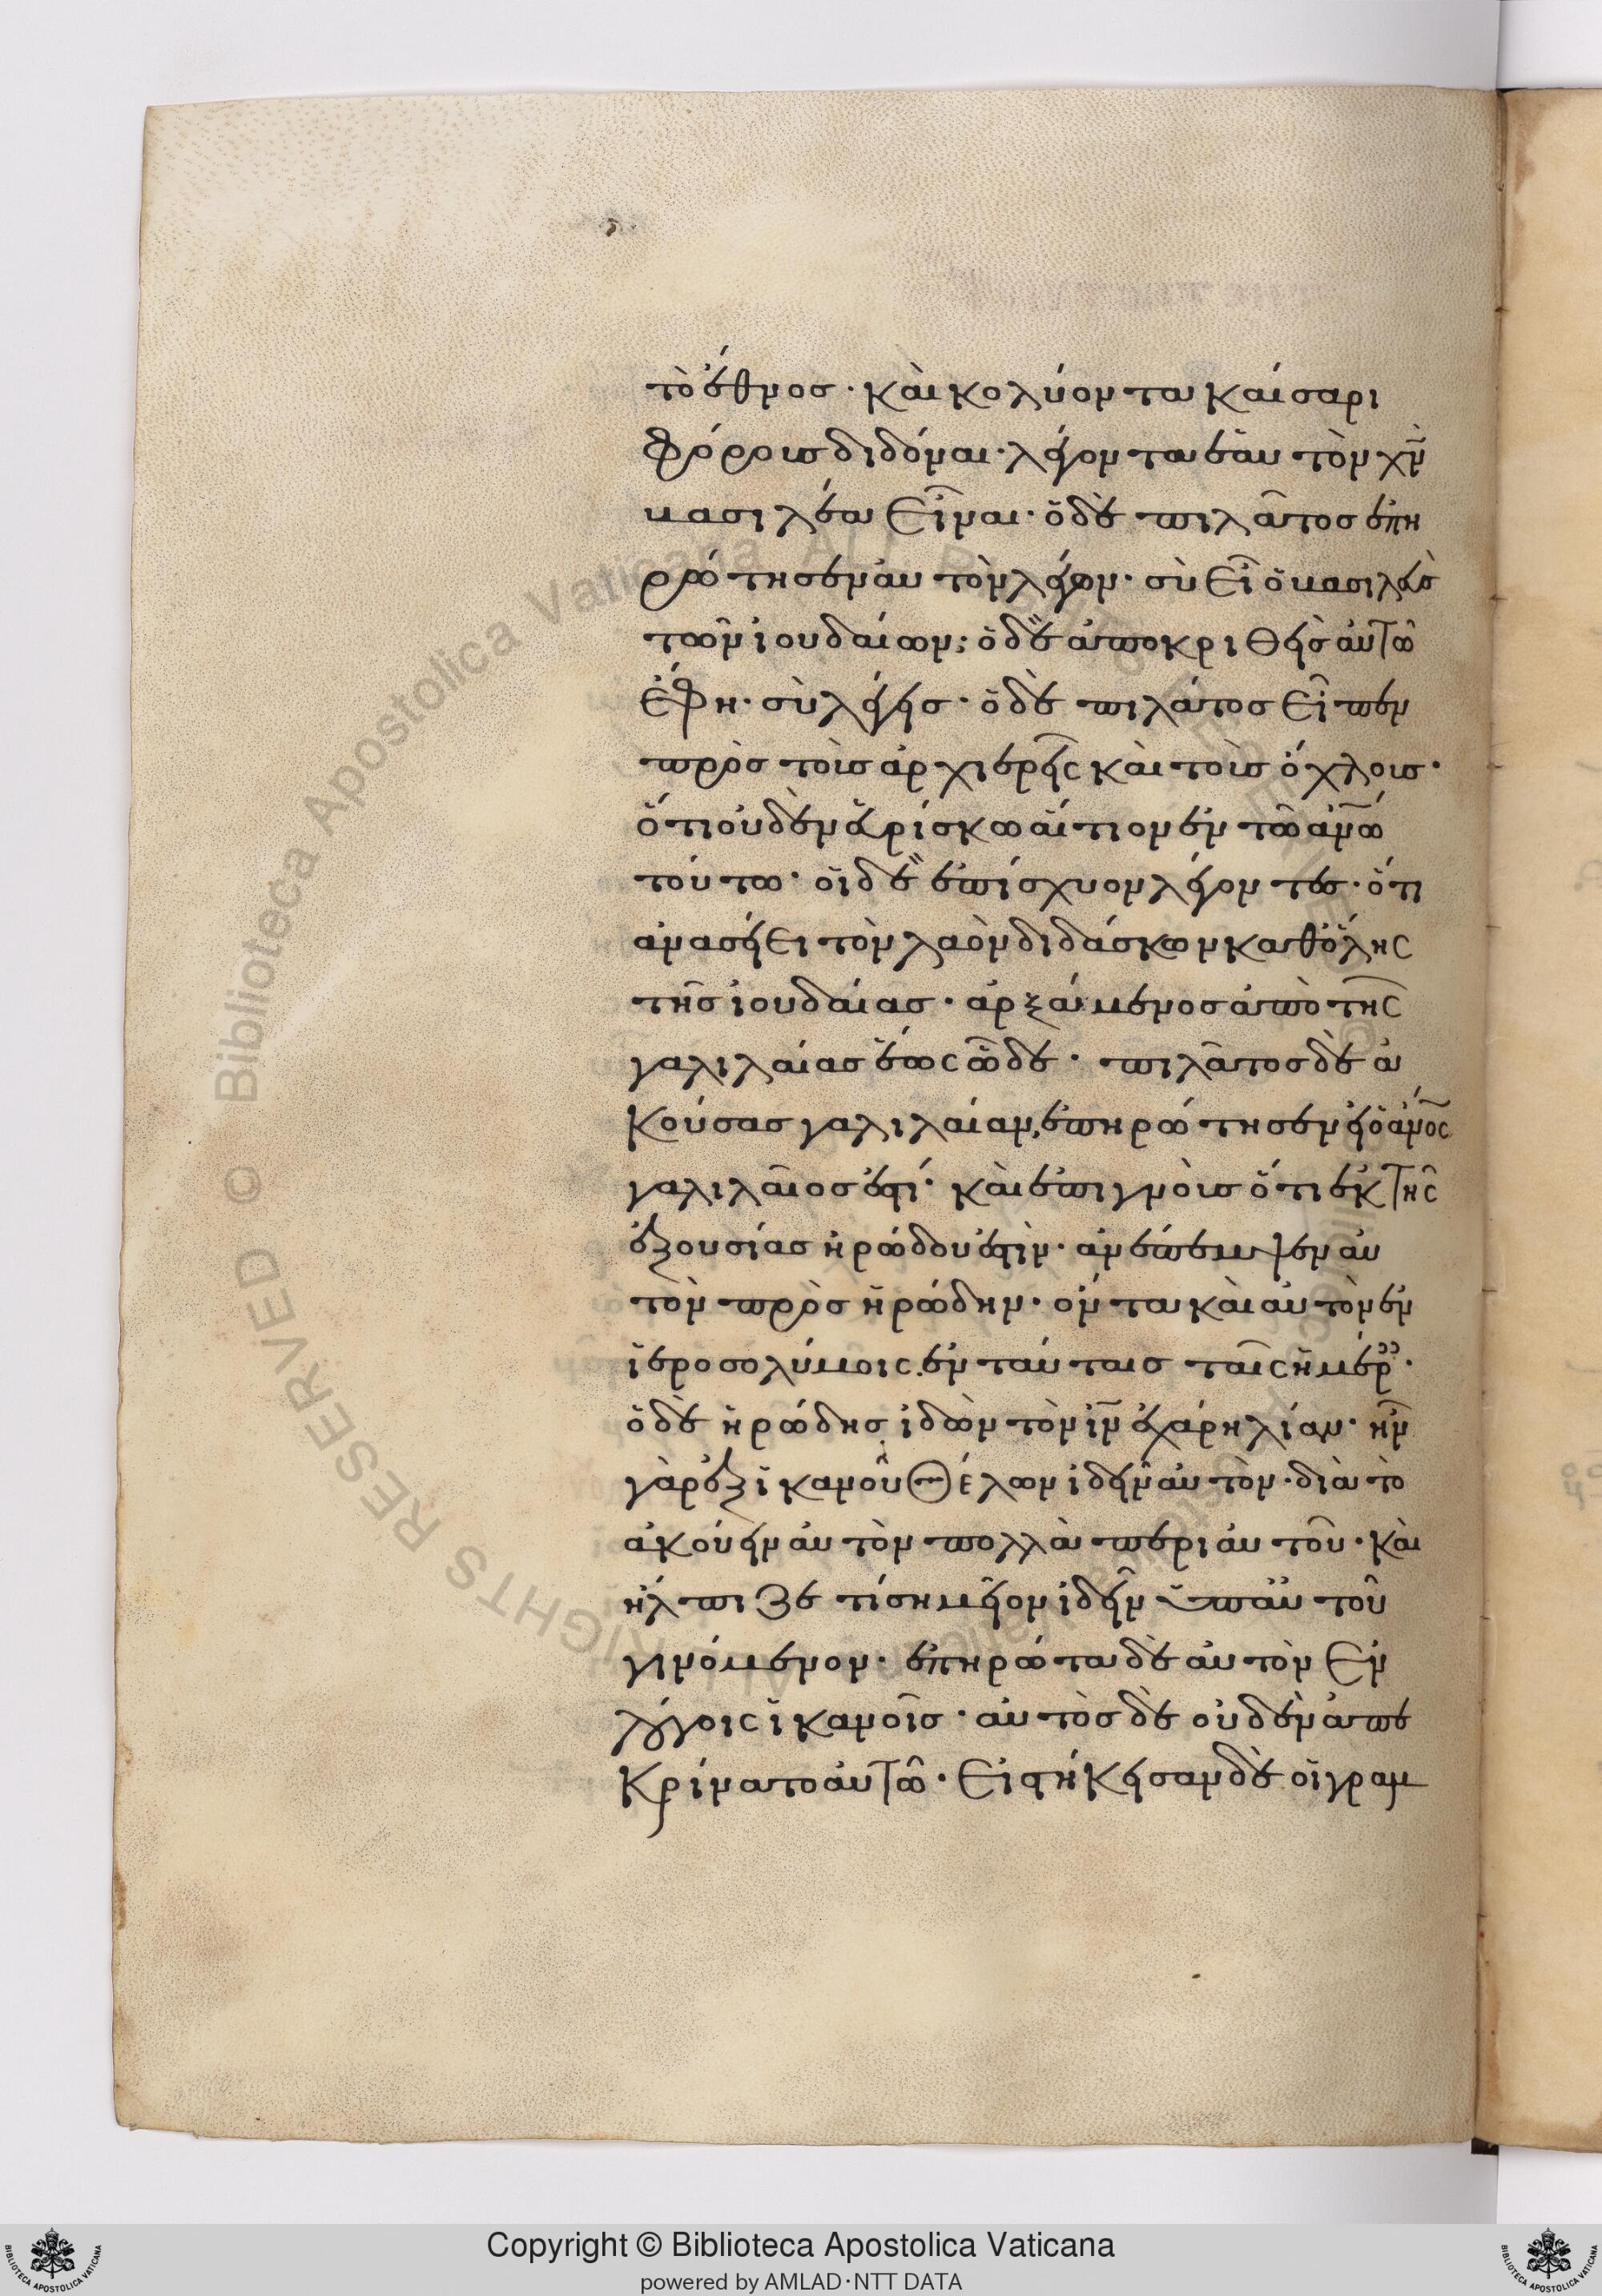 τὸ ἔθνος· καὶ κολύοντα καίσαρι
φόροις διδόναι· λέγοντα ἑαυτὸν χν̅
βασιλέα εἶναι· ὁ δὲ πιλᾶτος ἐπη
ρώτησεν αὐτὸν λέγων· σὺ εἶ ὁ βασιλεὺς
τῶν ἰουδαίων; ὁ δὲ ἀποκριθεὶς αὐτῶ
ἔφη· σὺ λέγεις· ὁ δὲ πιλάτος εἶπεν
πρὸς τοὺς ἀρχιερεῖς καὶ τοὺς ὄχλους·
ὅτι οὐδὲν εὑρίσκω αἴτιον ἐν τῶ ἀν̅ω
τούτω· οἱ δὲ ἐπίσχυον λέγοντες· ὅτι
ἀνασείει τὸν λαὸν διδάσκων καθ' ὅλης
τῆς ἰουδαίας· ἀρξάμενος ἀπὸ τῆς
γαλιλαίας ἕως ὧδε· πιλᾶτος δὲ ἀ
κούσας γαλιλαίαν, ἐπηρώτησεν εἰ ὁ ἀν̅ος
γαλιλαῖος ἐστί· καὶ ἐπιγνοὺς ὅτι ἐκ τῆς
ἐξουσίας ἡρώδου ἐστὶν· ἀνέπεμψεν αὐ
τὸν πρὸς ἡρώδην· ὄντα καὶ αὐτὸν ἐν
ἱεροσολύμοις. ἐν ταύταις ταῖς ἡμέρ·
ὁ δὲ ἡρώδης ἰδὼν τὸν ιν̅ ἐχάρη λίαν· ἦν
γὰρ ἐξ ἱκανοῦ θέλων ἰδεῖν αὐτὸν· διὰ τὸ
ἀκούειν αὐτὸν πολλὰ περὶ αὐτοῦ· καὶ
ἤλπιζε τί σημεῖον ἰδεῖν ὑπ' αὐτοῦ
γινόμενον· ἐπηρώτα δὲ αὐτὸν ἐν
λόγοις ἱκανοῖς· αὐτὸς δὲ οὐδὲν ἀπε
κρίνατο αὐτῶ· εἱστήκεισαν δὲ οἱ γραμ
Copyright © Biblioteca Apostolica Vaticana
powered by AMLAD·NTT DATA